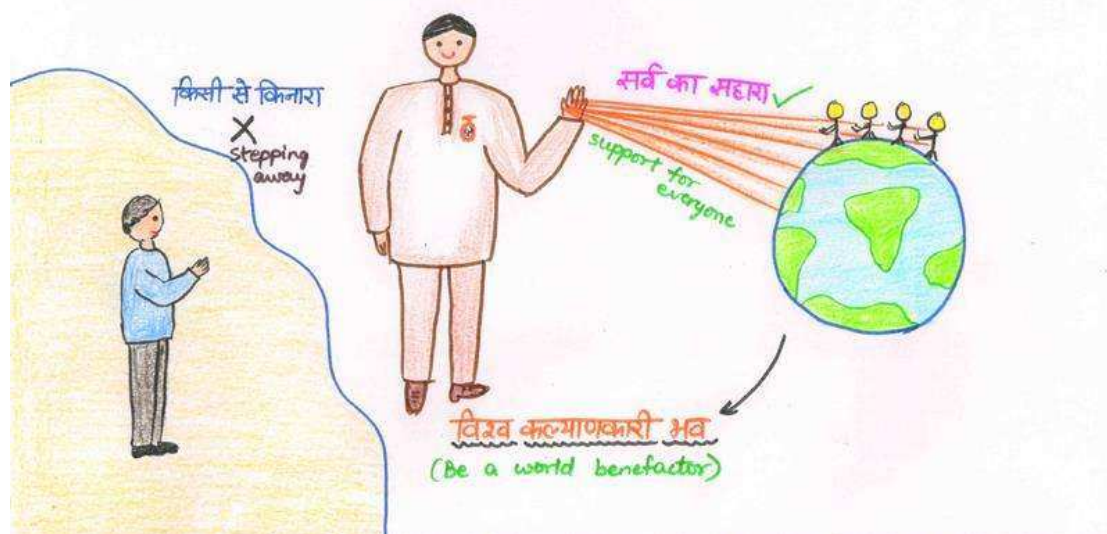 किसी से किनारा
X
stepping
away
सर्व का सहारा ✓
support for
everyone
विश्व कल्याणकारी भव
(Be a world benefactor)